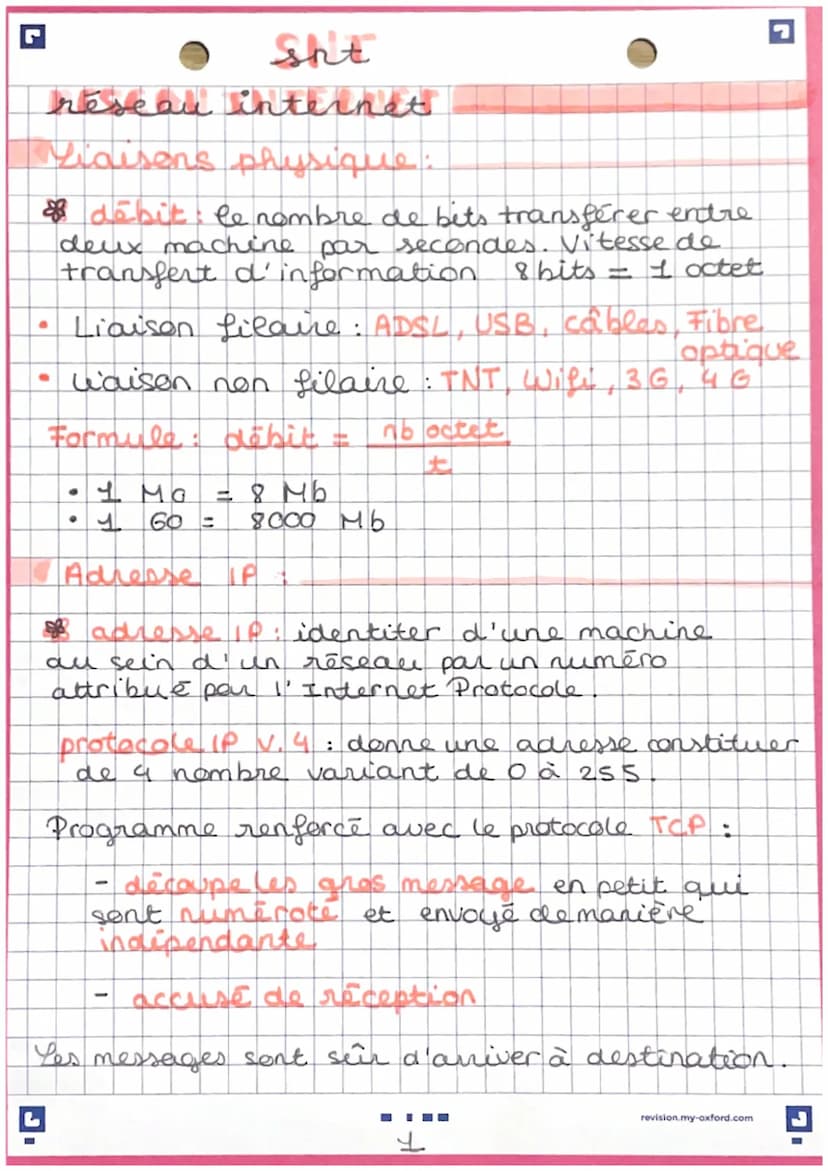 snt
réseau internet
Liaisons physique :
débit : le nombre de bits transférer entre
deux machine par secondes. Vitesse de
transfert d'information 8 bits = 1 octet
• Liaison filaire : ADSL, USB, câbles, Fibre
optique
• Liaison non filaire : TNT, Wifi, 3G, 4G
Formule : débit = nb octet
t
• 1 Mo = 8 Mb
• 1 GO = 8000 Mb
Adresse IP :
adresse IP : identiter d'une machine
au sein d'un réseau par un numéro
attribué par l'Internet Protocole.
protocole IP V.4 : donne une adresse constituer
de 4 nombre variant de 0 à 255.
Programme renforcé avec le protocole TCP :
- découpe les gros message en petit qui
sont numéroté et envoyé de manière
indépendante
- accusé de réception
Les messages sont sûr d'arriver à destination.
revision.my-oxford.com
1